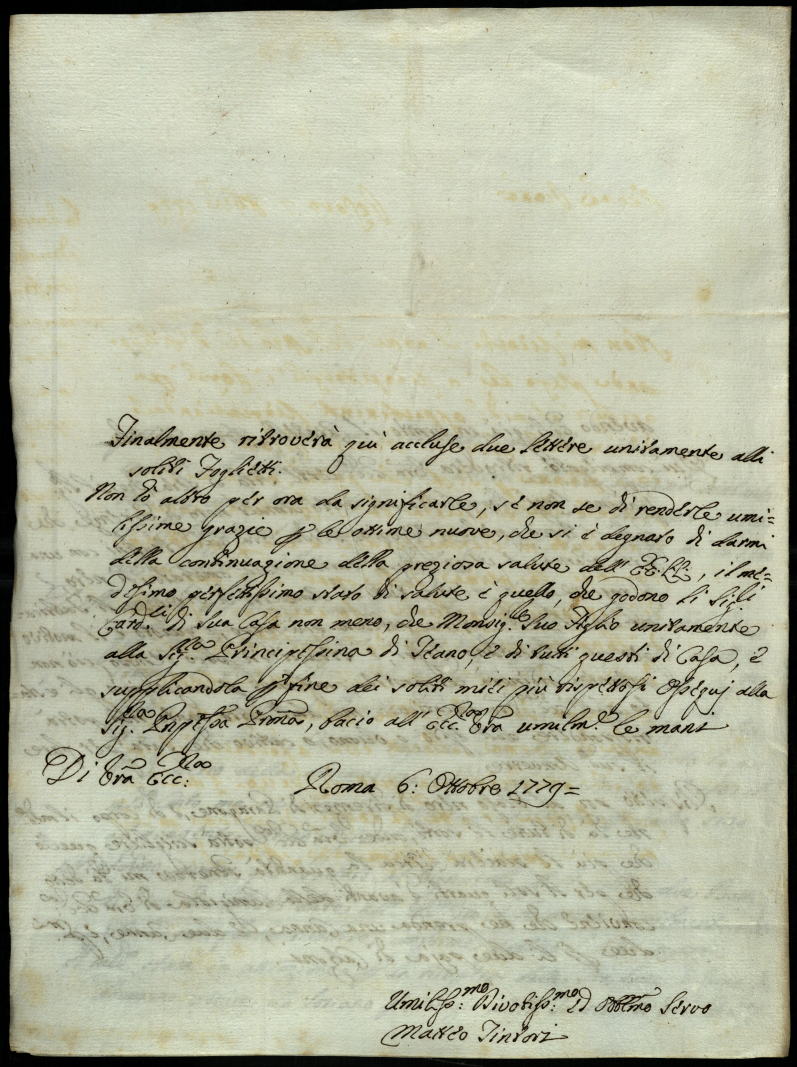 Finalmente ritroverà quì accluse due lettere unitamente alli
soliti Foglietti.
Non ò altro per ora da significarle, se non se di renderle umi=
lissime grazie p le ottime nuove, che si è degnato di darmi
della continuazione della preziosa salute dell' EE: LL:, il me=
desimo perfettissimo stato di salute è quello, che godono li Sig.li
Card.li di Sua Casa non meno, che Monsig.e Suo Figlio unitamente
alla Sig.lla Principessina di Teano, e di tutti questi di Casa, e
supplicandola p fine dei soliti miei più rispettosi ossequj alla
Sig.lla Pnpessa Pnna, bacio all' Ecc. Vra umilm.e le mani
Di Vra Ecc:
Roma 6: Ottobre 1779=
Umiliss:mo Divotiss:mo ed Obblmo Servo
Matteo Tintori